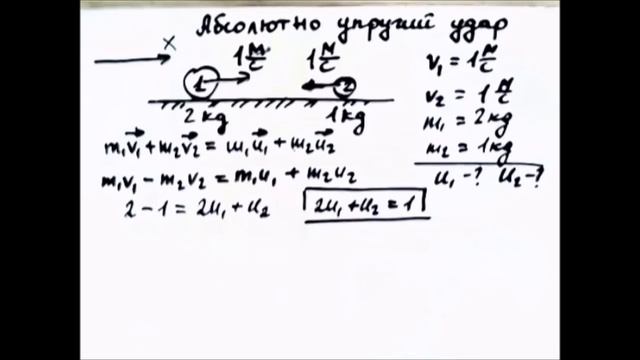 Абсолютно упругий удар
X
1 м/с
1 м/с
1
2
2 кг
1 кг
v₁ = 1 м/с
v₂ = 1 м/с
m₁ = 2 кг
m₂ = 1 кг
u₁ - ? u₂ - ?
m₁v⃗₁ + m₂v⃗₂ = m₁u⃗₁ + m₂u⃗₂
m₁v₁ - m₂v₂ = m₁u₁ + m₂u₂
2 - 1 = 2u₁ + u₂
2u₁ + u₂ = 1